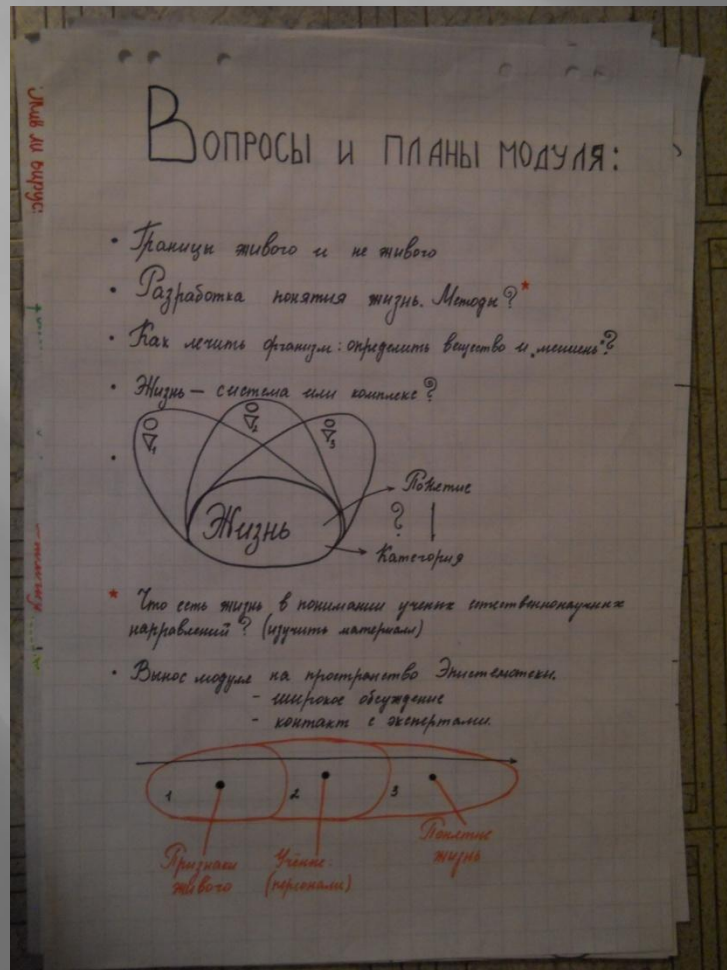 Вопросы и планы модуля:
Жив ли вирус:
• Границы живого и не живого
• Разработка понятия жизнь. Методы?*
• Как лечить организм: определить вещество и „мишень"?
• Жизнь — система или комплекс?
1
2
3
•
Жизнь
Понятие
?
Категория
* Что есть жизнь в понимании ученых естественнонаучных
направлений? (изучить материал)
• Вынос модуля на пространство Эпистематеки.
- широкое обсуждение
- контакт с экспертами.
1 2 3
Признаки
живого
Учёные:
(персонали)
Понятие
жизнь